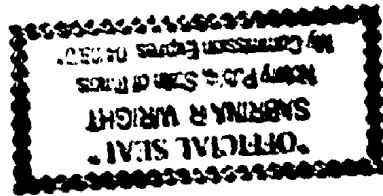 "OFFICIAL SEAL"
SABRINA R WRIGHT
Notary Public, State of Illinois
My Commission Expires